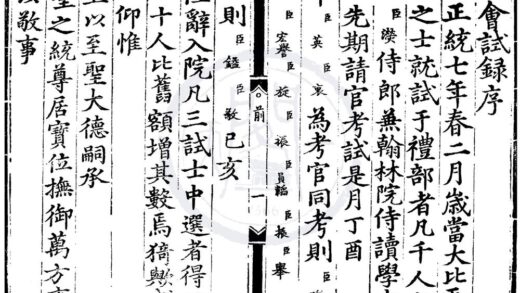 會試錄序
正統七年春二月歲當大比
之士就試于禮部者凡千人
臣濙侍郎兼翰林院侍讀學
先期請官考試是月丁酉
英臣 為考官同考則臣
臣宏譽臣旋臣振臣員韜臣振臣舉
前 一
則臣鎰臣敏已亥
辭入院凡三試士中選者得
十人比舊額增其數焉猗歟
仰惟
上以至聖大德嗣承
聖之統尊居寶位撫御萬方
敬事